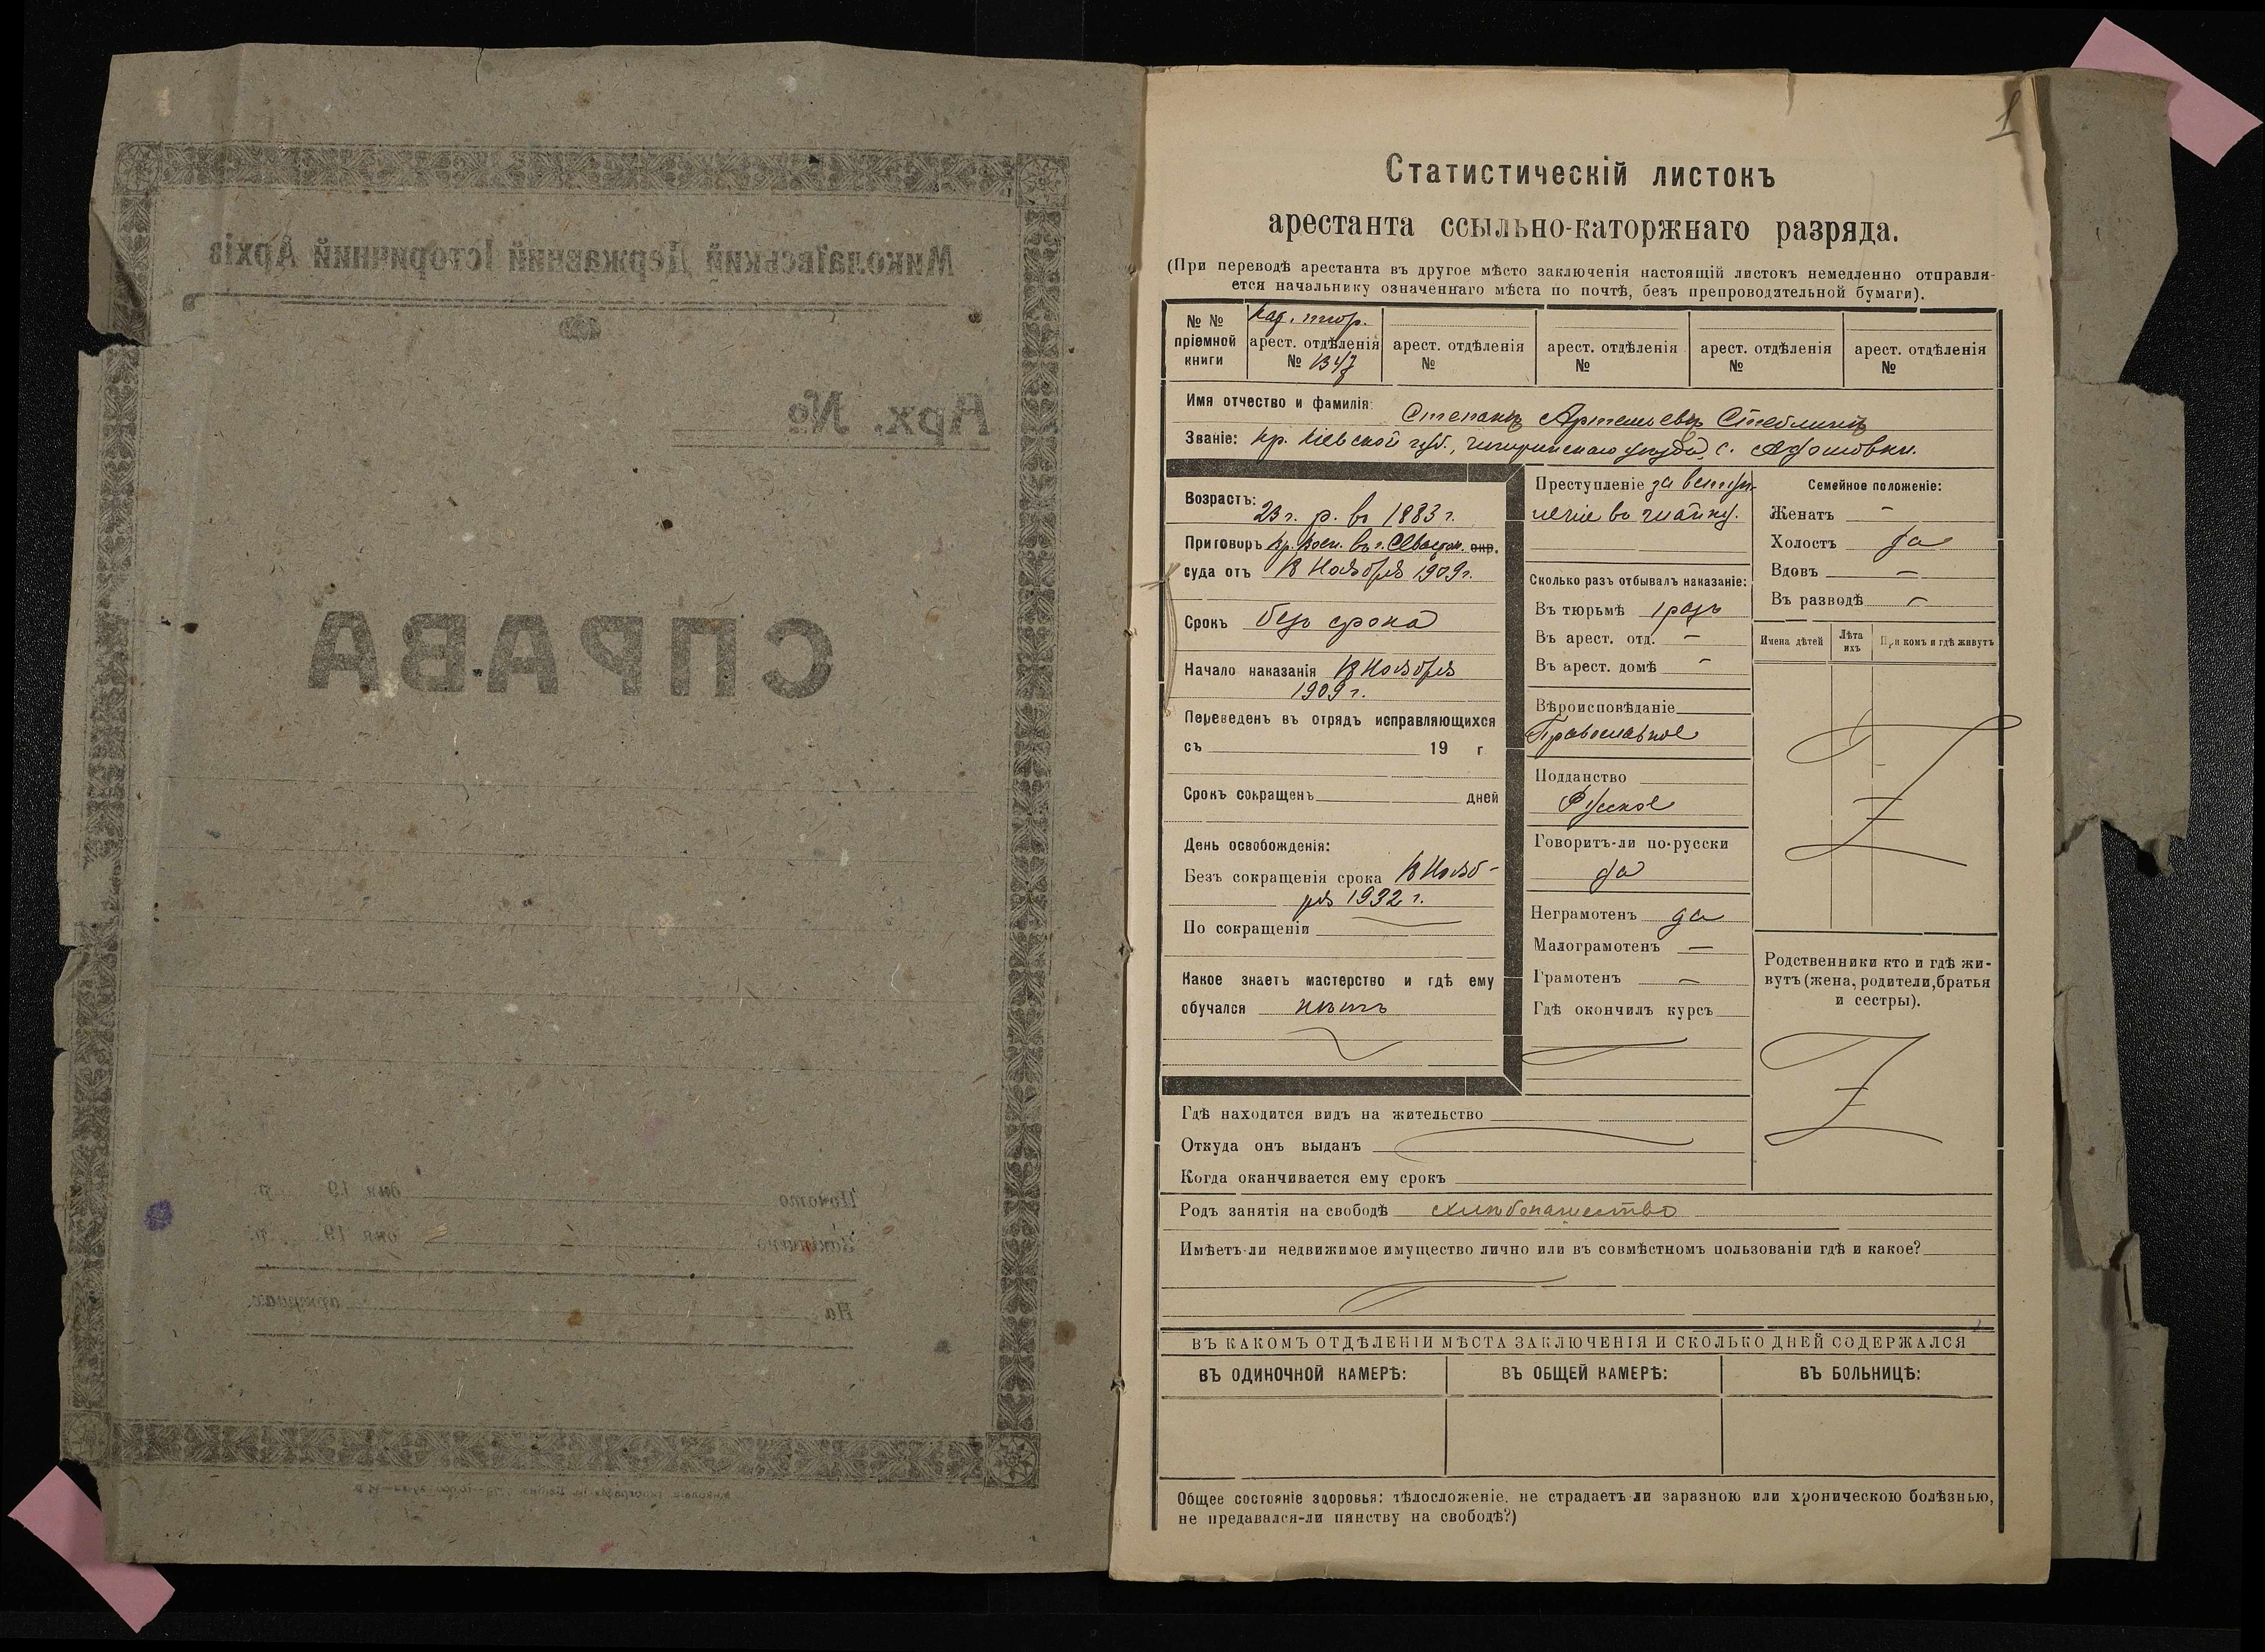 Миколаївський Державний Історичний Архів
Арх. №
СПРАВА
Почато дня 19 р.
Закінчено дня 19 р.
На аркушах.
1
Статистическій листокъ
арестанта ссыльно-каторжнаго разряда.
(При переводѣ арестанта въ другое мѣсто заключенія настоящій листокъ немедленно отправля-
ется начальнику означеннаго мѣста по почтѣ, безъ препроводительной бумаги).
№ № пріемной книги
арест. отдѣленія № 1347
арест. отдѣленія №
арест. отдѣленія №
арест. отдѣленія №
арест. отдѣленія №
Имя отчество и фамилія: Степанъ Артемьевъ
Званіе: кр. Кіевской губ., Чигиринскаго уѣзда, с.
Возрастъ:
23 г. р. въ 1883 г.
Приговоръ Вр. Воен. въ г. Севастоп. окр.
суда отъ Ноября 1909 г.
Срокъ безъ срока
Начало наказанія Ноября
1909 г.
Переведенъ въ отрядъ исправляющихся
съ 19 г
Срокъ сокращенъ дней
День освобожденія:
Безъ сокращенія срока Нояб-
ря 1932 г.
По сокращеніи
Какое знаетъ мастерство и гдѣ ему
обучался нѣтъ
Преступленіе за вступ-
леніе въ шайку.
Сколько разъ отбывалъ наказаніе:
Въ тюрьмѣ 1 разъ
Въ арест. отд. –
Въ арест. домѣ –
Вѣроисповѣданіе
Православное
Подданство
Русское
Говоритъ-ли по-русски
да
Неграмотенъ да
Малограмотенъ —
Грамотенъ —
Гдѣ окончилъ курсъ
Семейное положеніе:
Женатъ –
Холостъ да
Вдовъ —
Въ разводѣ –
Имена дѣтей
Лѣта ихъ
При комъ и гдѣ живутъ
Родственники кто и гдѣ жи-
вутъ (жена, родители, братья
и сестры).
Гдѣ находится видъ на жительство
Откуда онъ выданъ
Когда оканчивается ему срокъ
Родъ занятія на свободѣ хлѣбопашество
Имѣетъ-ли недвижимое имущество лично или въ совмѣстномъ пользованіи гдѣ и какое?
ВЪ КАКОМЪ ОТДѢЛЕНІИ МѢСТА ЗАКЛЮЧЕНІЯ И СКОЛЬКО ДНЕЙ СОДЕРЖАЛСЯ
ВЪ ОДИНОЧНОЙ КАМЕРѢ:
ВЪ ОБЩЕЙ КАМЕРѢ:
ВЪ БОЛЬНИЦѢ:
Общее состояніе здоровья: тѣлосложеніе. не страдаетъ ли заразною или хроническою болѣзнью,
не предавался-ли пянству на свободѣ?)